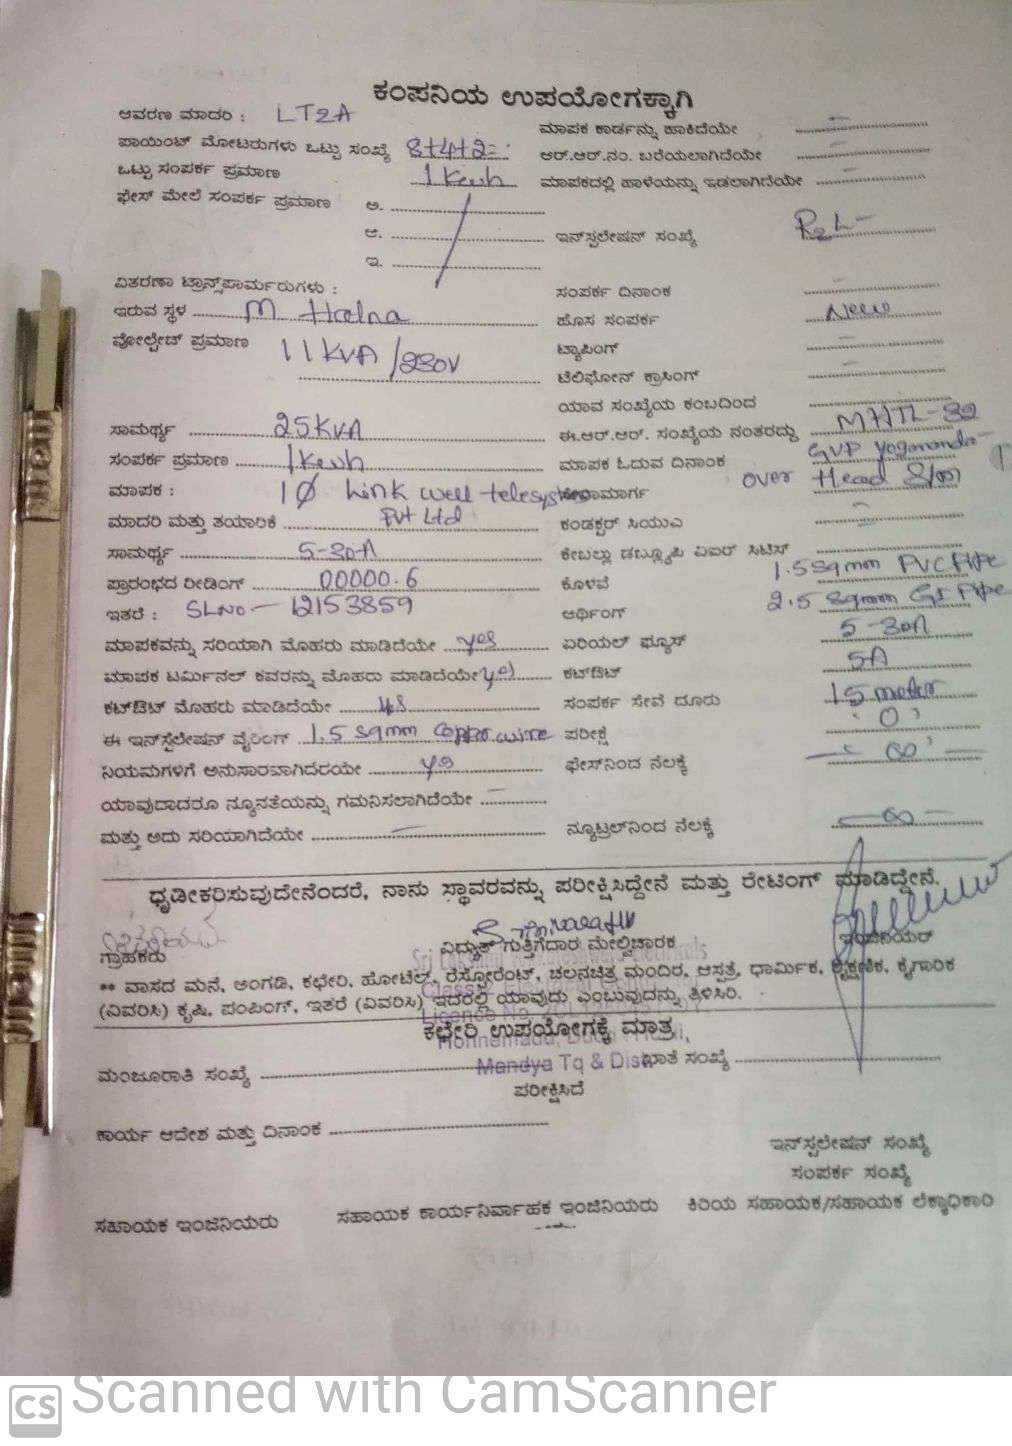 ಕಂಪನಿಯ ಉಪಯೋಗಕ್ಕಾಗಿ
ಆವರಣ ಮಾದರಿ : LT2A
ಮಾಪಕ ಕಾರ್ಡನ್ನು ಹಾಕಿದೆಯೇ
ಪಾಯಿಂಟ್ ಮೋಟರುಗಳು ಒಟ್ಟು ಸಂಖ್ಯೆ 8+4+2=
ಆರ್.ಆರ್.ನಂ. ಬರೆಯಲಾಗಿದೆಯೇ
ಒಟ್ಟು ಸಂಪರ್ಕ ಪ್ರಮಾಣ 1 Kwh
ಮಾಪಕದಲ್ಲಿ ಹಾಳೆಯನ್ನು ಇಡಲಾಗಿದೆಯೇ
ಫೇಸ್ ಮೇಲೆ ಸಂಪರ್ಕ ಪ್ರಮಾಣ ಅ.
ಆ.
ಇನ್‌ಸ್ಟಲೇಷನ್ ಸಂಖ್ಯೆ
ಇ.
ವಿತರಣಾ ಟ್ರಾನ್ಸ್‌ಫಾರ್ಮರುಗಳು :
ಸಂಪರ್ಕ ದಿನಾಂಕ
ಇರುವ ಸ್ಥಳ M
ಹೊಸ ಸಂಪರ್ಕ New
ವೋಲ್ಟೇಜ್ ಪ್ರಮಾಣ 11KVA/230V
ಟ್ಯಾಪಿಂಗ್
ಟೆಲಿಫೋನ್ ಕ್ರಾಸಿಂಗ್
ಯಾವ ಸಂಖ್ಯೆಯ ಕಂಬದಿಂದ
ಸಾಮರ್ಥ್ಯ 25KVA
ಈ.ಆರ್.ಆರ್. ಸಂಖ್ಯೆಯ ನಂತರದ್ದು MHTL-32
ಸಂಪರ್ಕ ಪ್ರಮಾಣ 1Kwh
ಮಾಪಕ ಓದುವ ದಿನಾಂಕ GVP Yogananda
ಮಾಪಕ : 1Ø Link well telesystem
over Head
ಮಾದರಿ ಮತ್ತು ತಯಾರಿಕೆ Pvt Ltd
ಕಂಡಕ್ಟರ್ ಸಿಯುಎ
ಸಾಮರ್ಥ್ಯ 5-30A
ಕೇಬಲ್ಲು ಡಬ್ಲ್ಯೂಪಿ ಏಎರ್ ಸಿಟಿಸ್
ಪ್ರಾರಂಭದ ರೀಡಿಂಗ್ 00000.6
ಕೊಳವೆ 1.5 Sqmm PVC Pipe
ಇತರೆ : SLNo - 12153859
ಆರ್ಥಿಂಗ್ 2.5 Sqmm GI Pipe
ಮಾಪಕವನ್ನು ಸರಿಯಾಗಿ ಮೊಹರು ಮಾಡಿದೆಯೇ yes
ಏರಿಯಲ್ ಫ್ಯೂಸ್ 5-30A
ಮಾಪಕ ಟರ್ಮಿನಲ್ ಕವರನ್ನು ಮೊಹರು ಮಾಡಿದೆಯೇ yes
ಕಟ್‌ಔಟ್ 5A
ಕಟ್‌ಔಟ್ ಮೊಹರು ಮಾಡಿದೆಯೇ yes
ಸಂಪರ್ಕ ಸೇವೆ ದೂರು 15 meter
ಈ ಇನ್‌ಸ್ಟಲೇಷನ್ ವೈರಿಂಗ್ 1.5 sqmm Copper wire
ಪರೀಕ್ಷೆ '0'
ನಿಯಮಗಳಿಗೆ ಅನುಸಾರವಾಗಿದೆಯೇ yes
ಫೇಸ್‌ನಿಂದ ನೆಲಕ್ಕೆ ∞
ಯಾವುದಾದರೂ ನ್ಯೂನತೆಯನ್ನು ಗಮನಿಸಲಾಗಿದೆಯೇ
ಮತ್ತು ಅದು ಸರಿಯಾಗಿದೆಯೇ
ನ್ಯೂಟ್ರಲ್‌ನಿಂದ ನೆಲಕ್ಕೆ ∞
ಧೃಡೀಕರಿಸುವುದೇನೆಂದರೆ, ನಾನು ಸ್ಥಾವರವನ್ನು ಪರೀಕ್ಷಿಸಿದ್ದೇನೆ ಮತ್ತು ರೇಟಿಂಗ್ ಮಾಡಿದ್ದೇನೆ.
ಗ್ರಾಹಕರು
ವಿದ್ಯುತ್ ಗುತ್ತಿಗೆದಾರ ಮೇಲ್ವಿಚಾರಕ
ಇಂಜಿನಿಯರ್
** ವಾಸದ ಮನೆ, ಅಂಗಡಿ, ಕಛೇರಿ, ಹೋಟೆಲ್, ರೆಸ್ಟೋರೆಂಟ್, ಚಲನಚಿತ್ರ ಮಂದಿರ, ಆಸ್ಪತ್ರೆ, ಧಾರ್ಮಿಕ, ಶೈಕ್ಷಣಿಕ, ಕೈಗಾರಿಕ
(ವಿವರಿಸಿ) ಕೃಷಿ, ಪಂಪಿಂಗ್, ಇತರೆ (ವಿವರಿಸಿ) ಇದರಲ್ಲಿ ಯಾವುದು ಎಂಬುವುದನ್ನು ತಿಳಿಸಿರಿ.
ಕಛೇರಿ ಉಪಯೋಗಕ್ಕೆ ಮಾತ್ರ
Mandya Tq & Dist
ಮಂಜೂರಾತಿ ಸಂಖ್ಯೆ
ಖಾತೆ ಸಂಖ್ಯೆ
ಪರೀಕ್ಷಿಸಿದೆ
ಕಾರ್ಯ ಆದೇಶ ಮತ್ತು ದಿನಾಂಕ
ಇನ್‌ಸ್ಟಲೇಷನ್ ಸಂಖ್ಯೆ
ಸಂಪರ್ಕ ಸಂಖ್ಯೆ
ಸಹಾಯಕ ಇಂಜಿನಿಯರು
ಸಹಾಯಕ ಕಾರ್ಯನಿರ್ವಾಹಕ ಇಂಜಿನಿಯರು
ಕಿರಿಯ ಸಹಾಯಕ/ಸಹಾಯಕ ಲೆಕ್ಕಾಧಿಕಾರಿ
CS Scanned with CamScanner